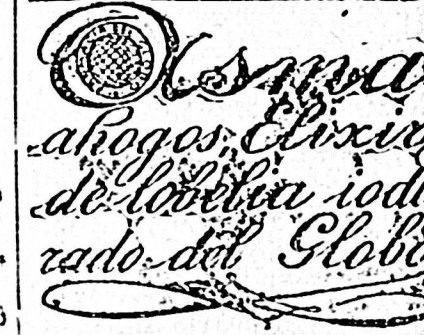 Asma
ahogos, Elixir
de lobelia iodu
rado del Globo